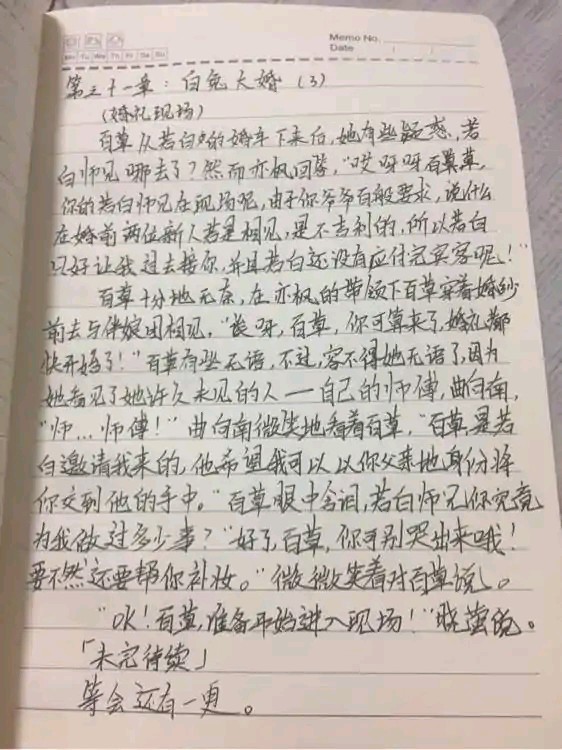 Memo No.
Date / /
Mo Tu We Th Fr Sa Su
第三十一章：白兔大婚（3）
（婚礼现场）
百草从若白的婚车下来后，她有些疑惑，若
白师兄哪去了？然而亦枫回答，“哎呀呀百草，
你的若白师兄在现场呢，由于你爷爷百般要求，说什么
在婚前两位新人若是相见，是不吉利的，所以若白
只好让我过去接你，并且若白还没有应付完宾客呢！”
百草十分地无奈，在亦枫的带领下百草穿着婚纱
前去与伴娘团相见，“诶呀，百草，你可算来了，婚礼都
快开始了！”百草有些无语，不过，容不得她无语了，因为
她看见了她许久未见的人——自己的师傅，曲向南，
“师…师傅！”曲向南微笑地看着百草，“百草，是若
白邀请我来的，他希望我可以以你父亲地身份将
你交到他的手中。”百草眼中含泪，若白师兄你究竟
为我做过多少事？“好了，百草，你可别哭出来哦！
要不然还要帮你补妆。”微微笑着对百草说。
“OK！百草，准备开始进入现场！”晓萤说。
「未完待续」
等会还有一更。